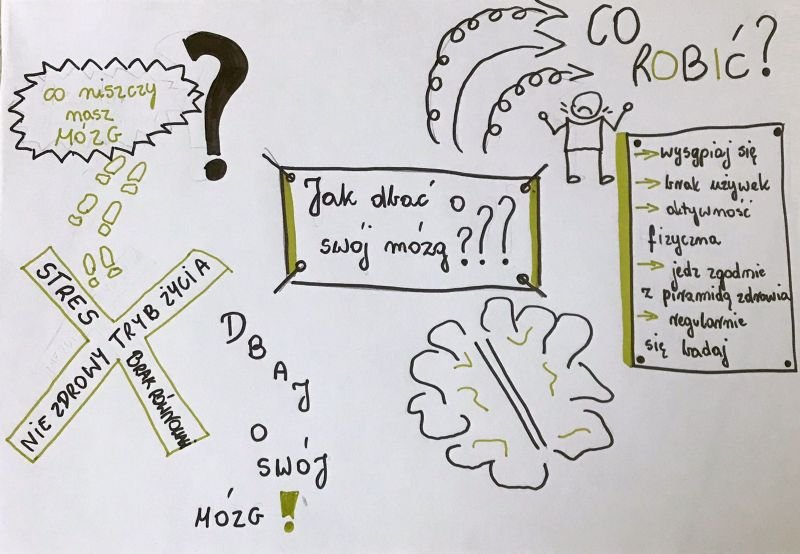 co niszczy
nasz
MÓZG
?
CO
ROBIĆ?
Jak dbać o
swój mózg???
→ wysypiaj się
→ brak używek
→ aktywność
fizyczna
→ jedz zgodnie
z piramidą zdrowia
→ regularnie
się badaj
STRES
NIE ZDROWY TRYB ŻYCIA
BRAK
DBAJ
O
SWÓJ
MÓZG !